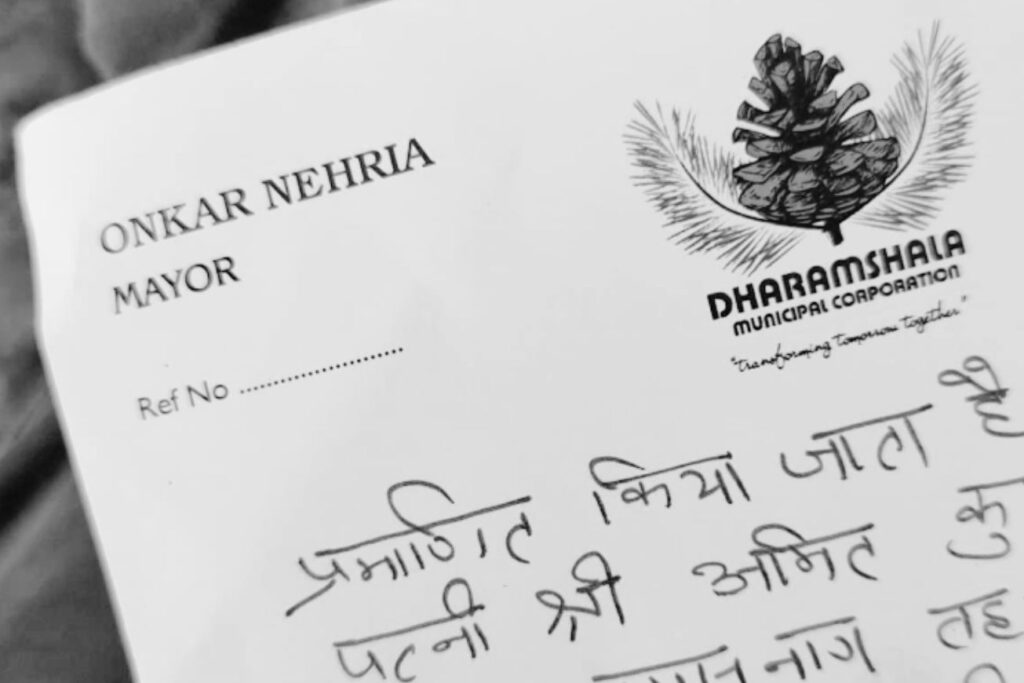 ONKAR NEHRIA
MAYOR
Ref No ........................
DHARAMSHALA
MUNICIPAL CORPORATION
"transforming tomorrow together"
प्रमाणित किया जाता है
पत्नी श्री अमित कु
नाग तह